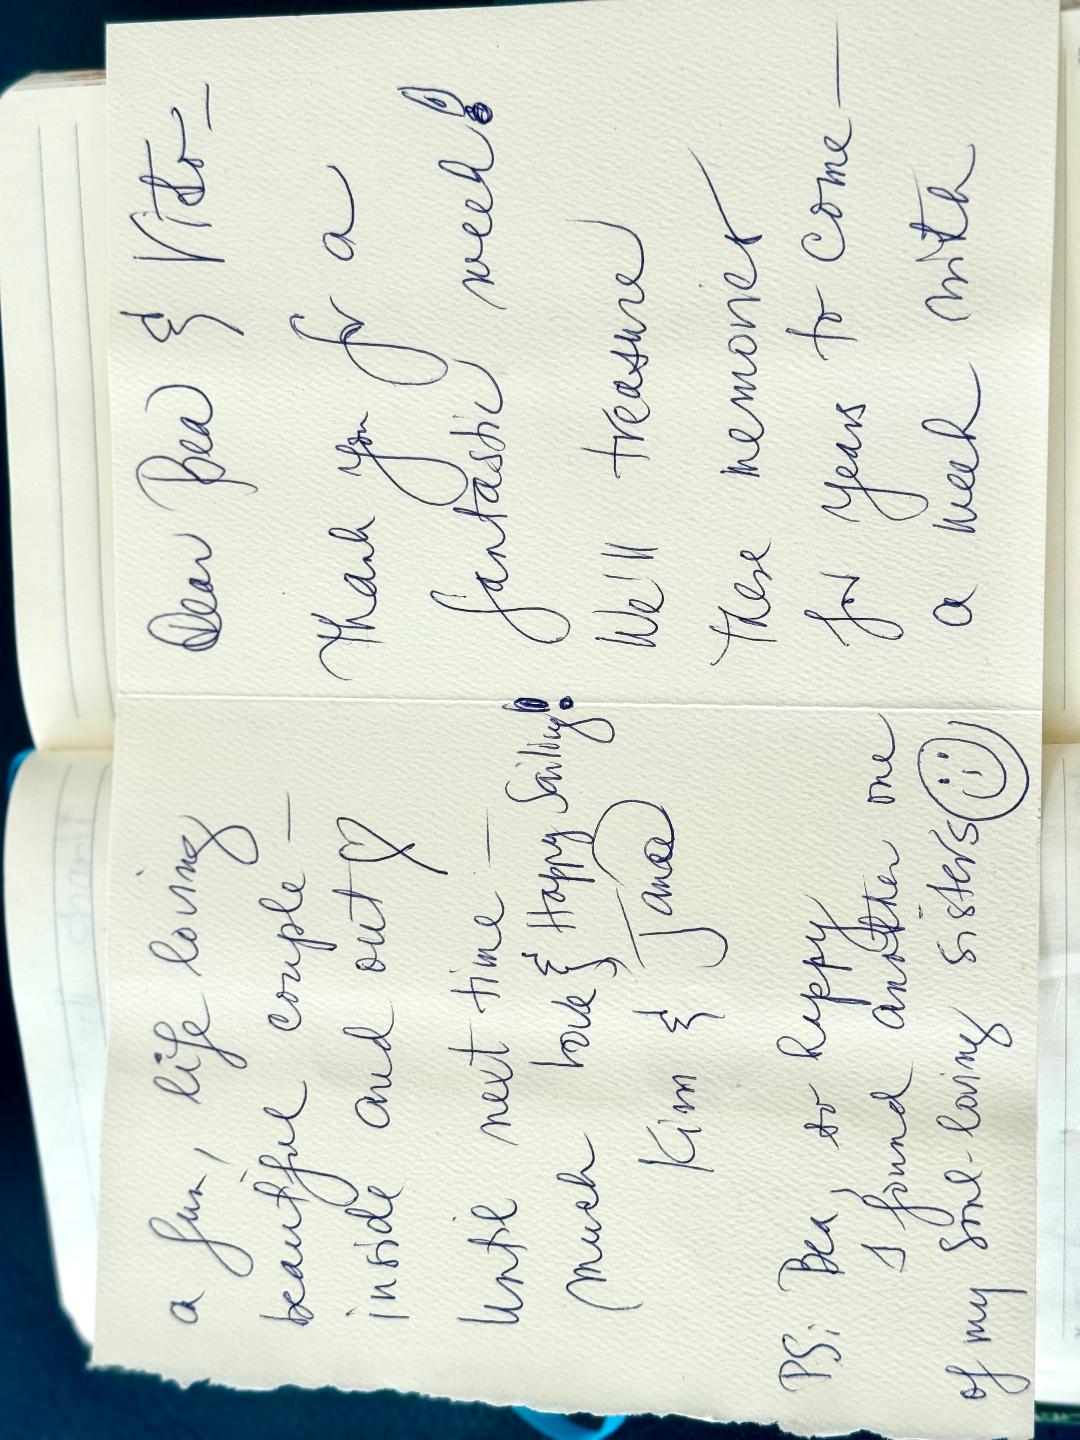 Dear Bea & Vito —
Thank you for a
fantastic week!
We'll treasure
these memories
for years to come —
a week with
a fun, life loving
beautiful couple —
inside and out ♡
Until next time —
much love & Happy Sailing!
Kim &
PS: Bea, so happy
I found another one
of my soul-loving sisters ☺